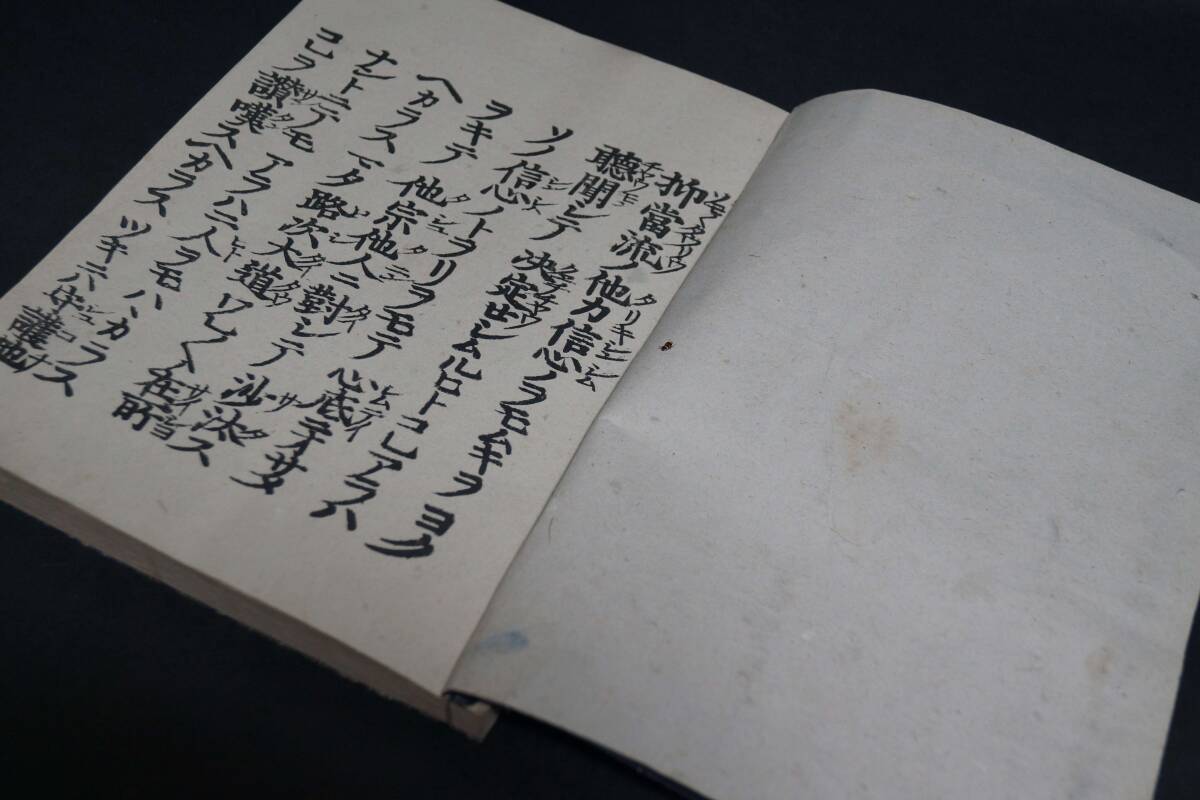 抑當流ノ他力信心ノヲモムキヲヨク
聽聞シテ決定せシムルヒトコレアラハ
ソノ信心ノトヲリヲモテ心底ニオサメ
ヲキテ他宗他人ニ對シテ沙汰ス
ヘカラスマタ路次大道ワレ〱在所
ナントニテモアラハニ人ヲモハヽカラス
コレヲ讃嘆スヘカラスツキニハ守護地